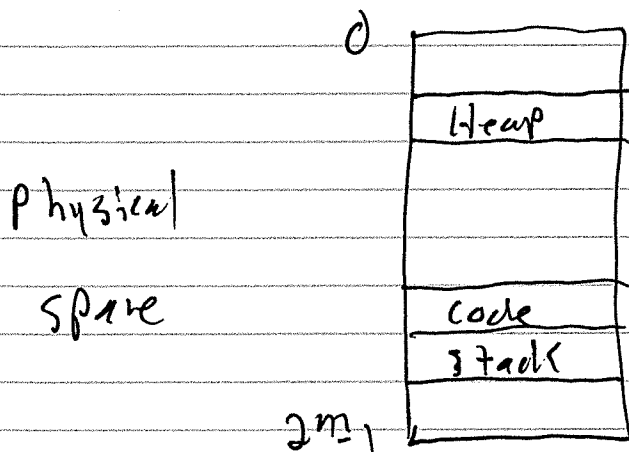 0
Heap
Physical
space
code
stack
2^m-1